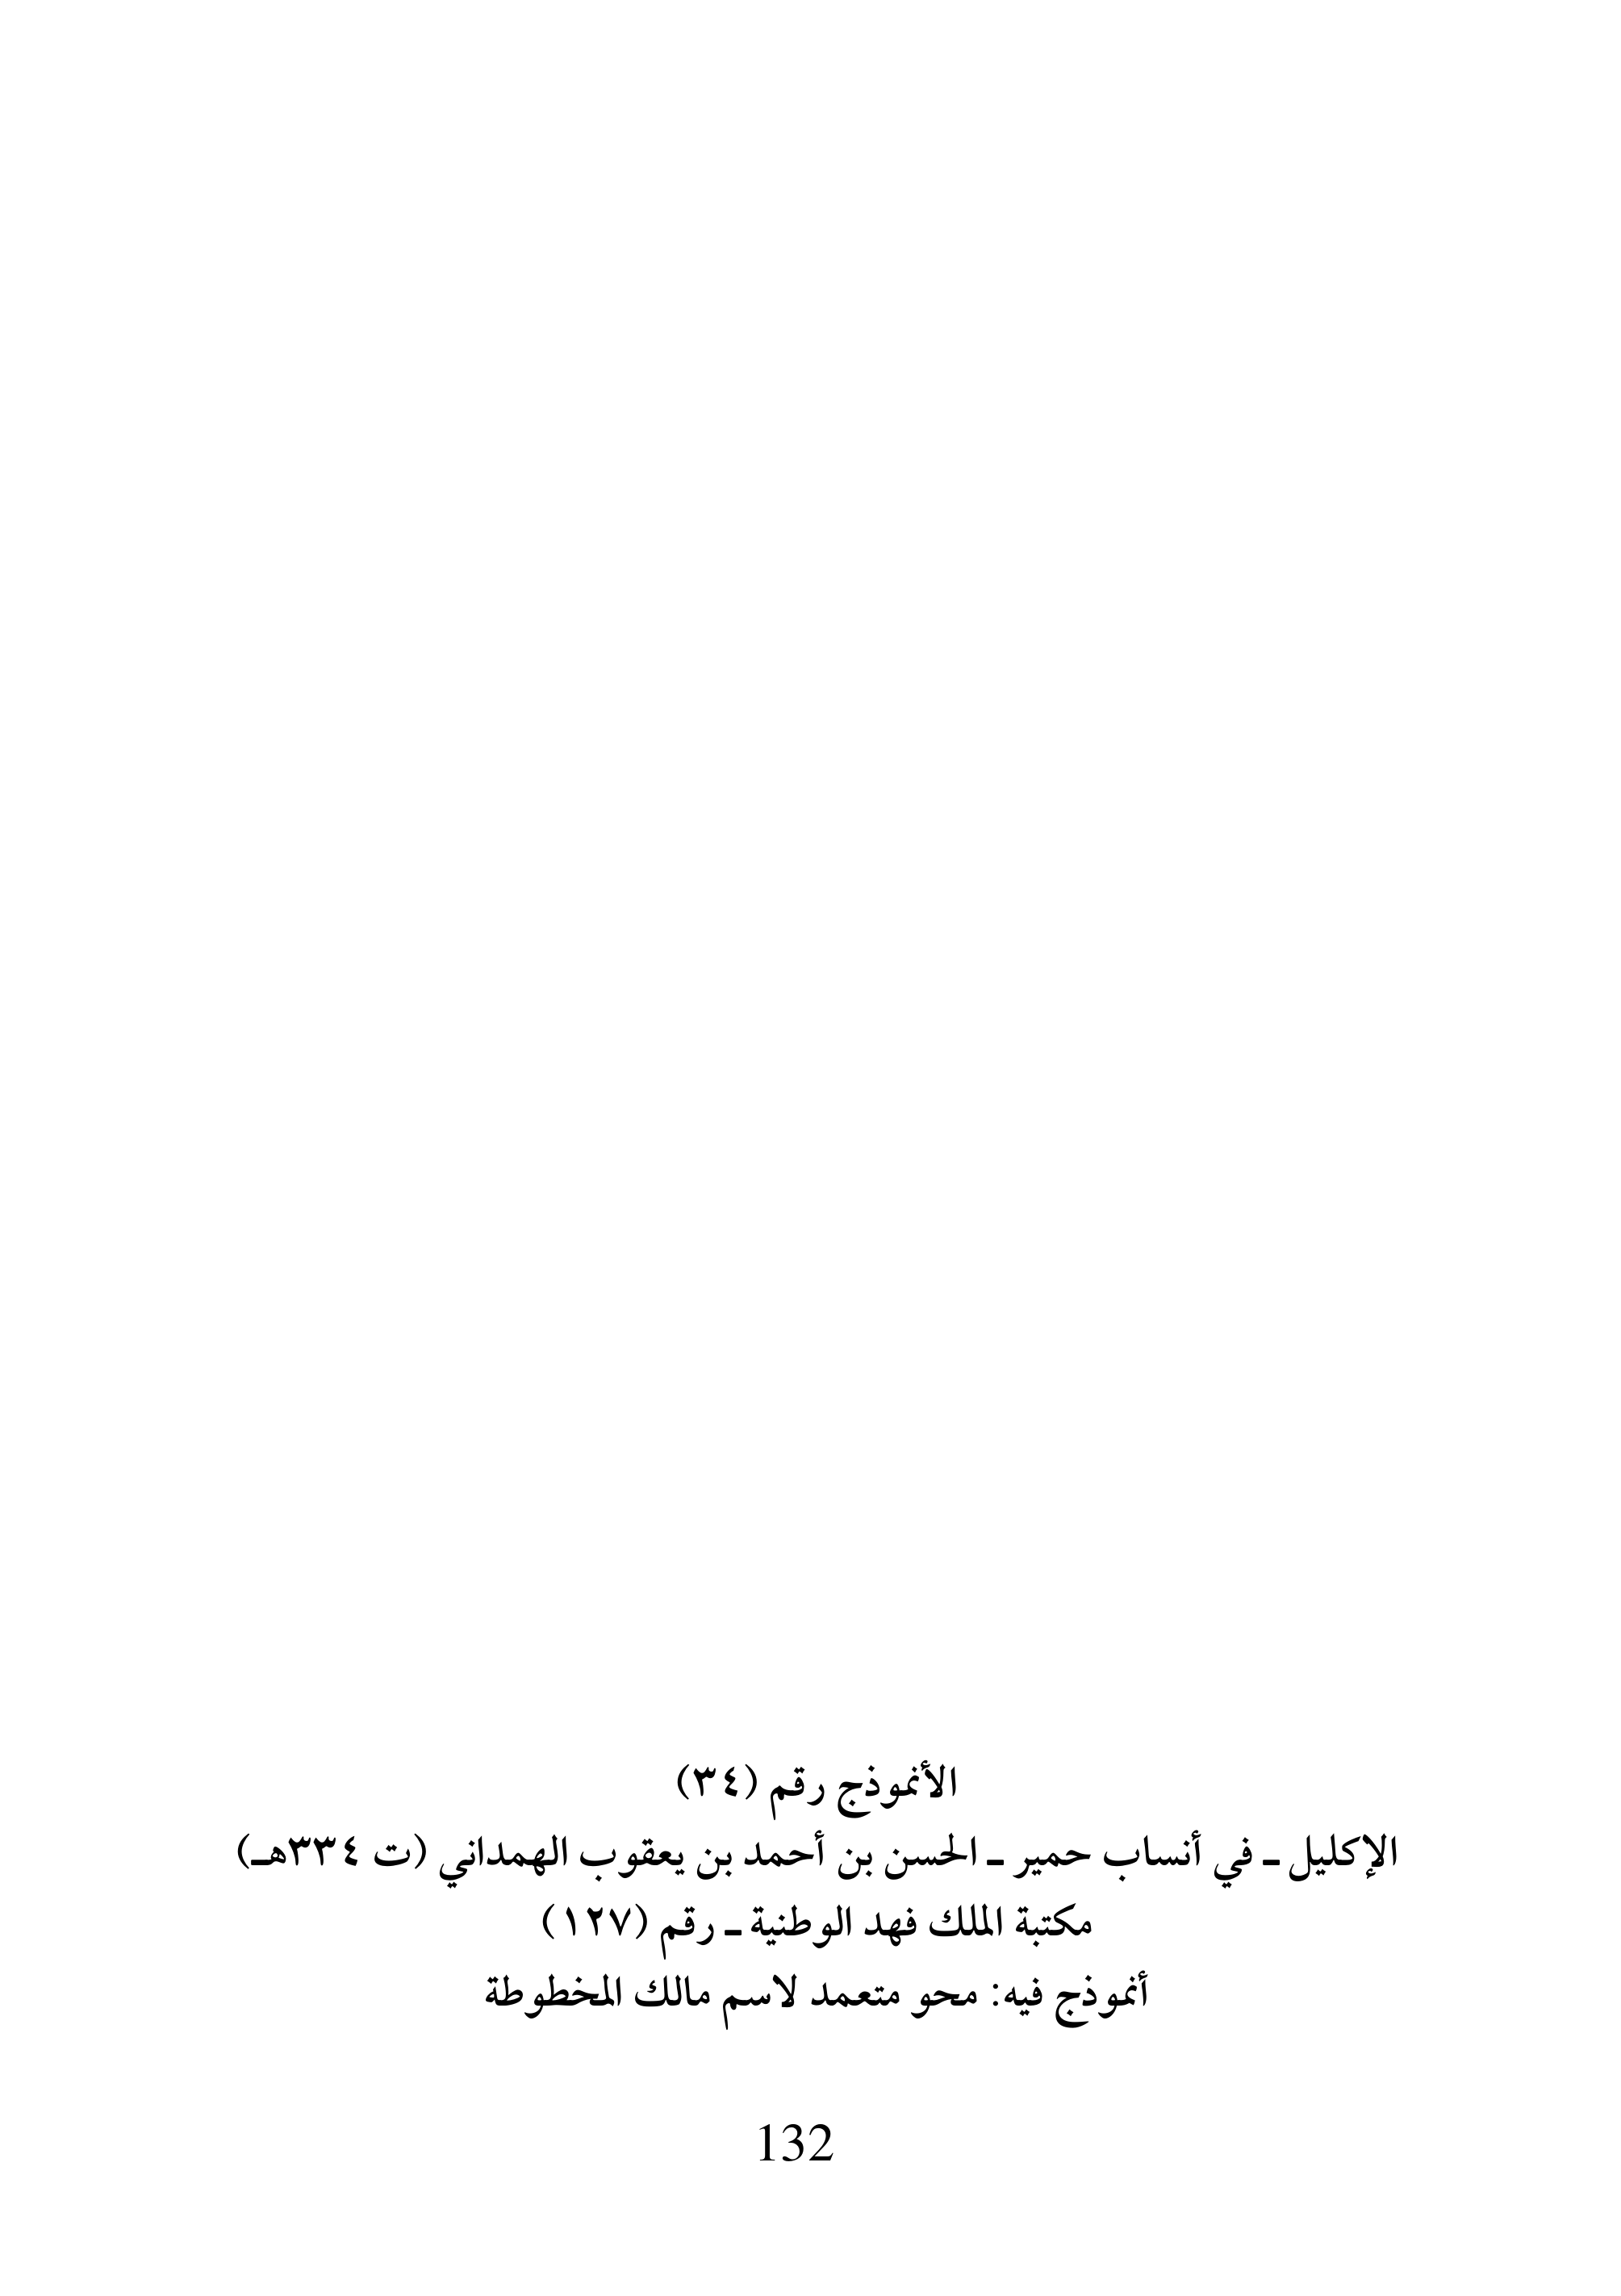 الأنموذج رقم (٣٤)
الإكليل ـ في أنساب حمير ـ الحسن بن أحمد بن يعقوب الهمداني (ت ٣٣٤هـ)
مكتبة الملك فهد الوطنية ـ رقم (١٢٧)
أنموذج فيه: محو متعمد لاسم مالك المخطوطة
132